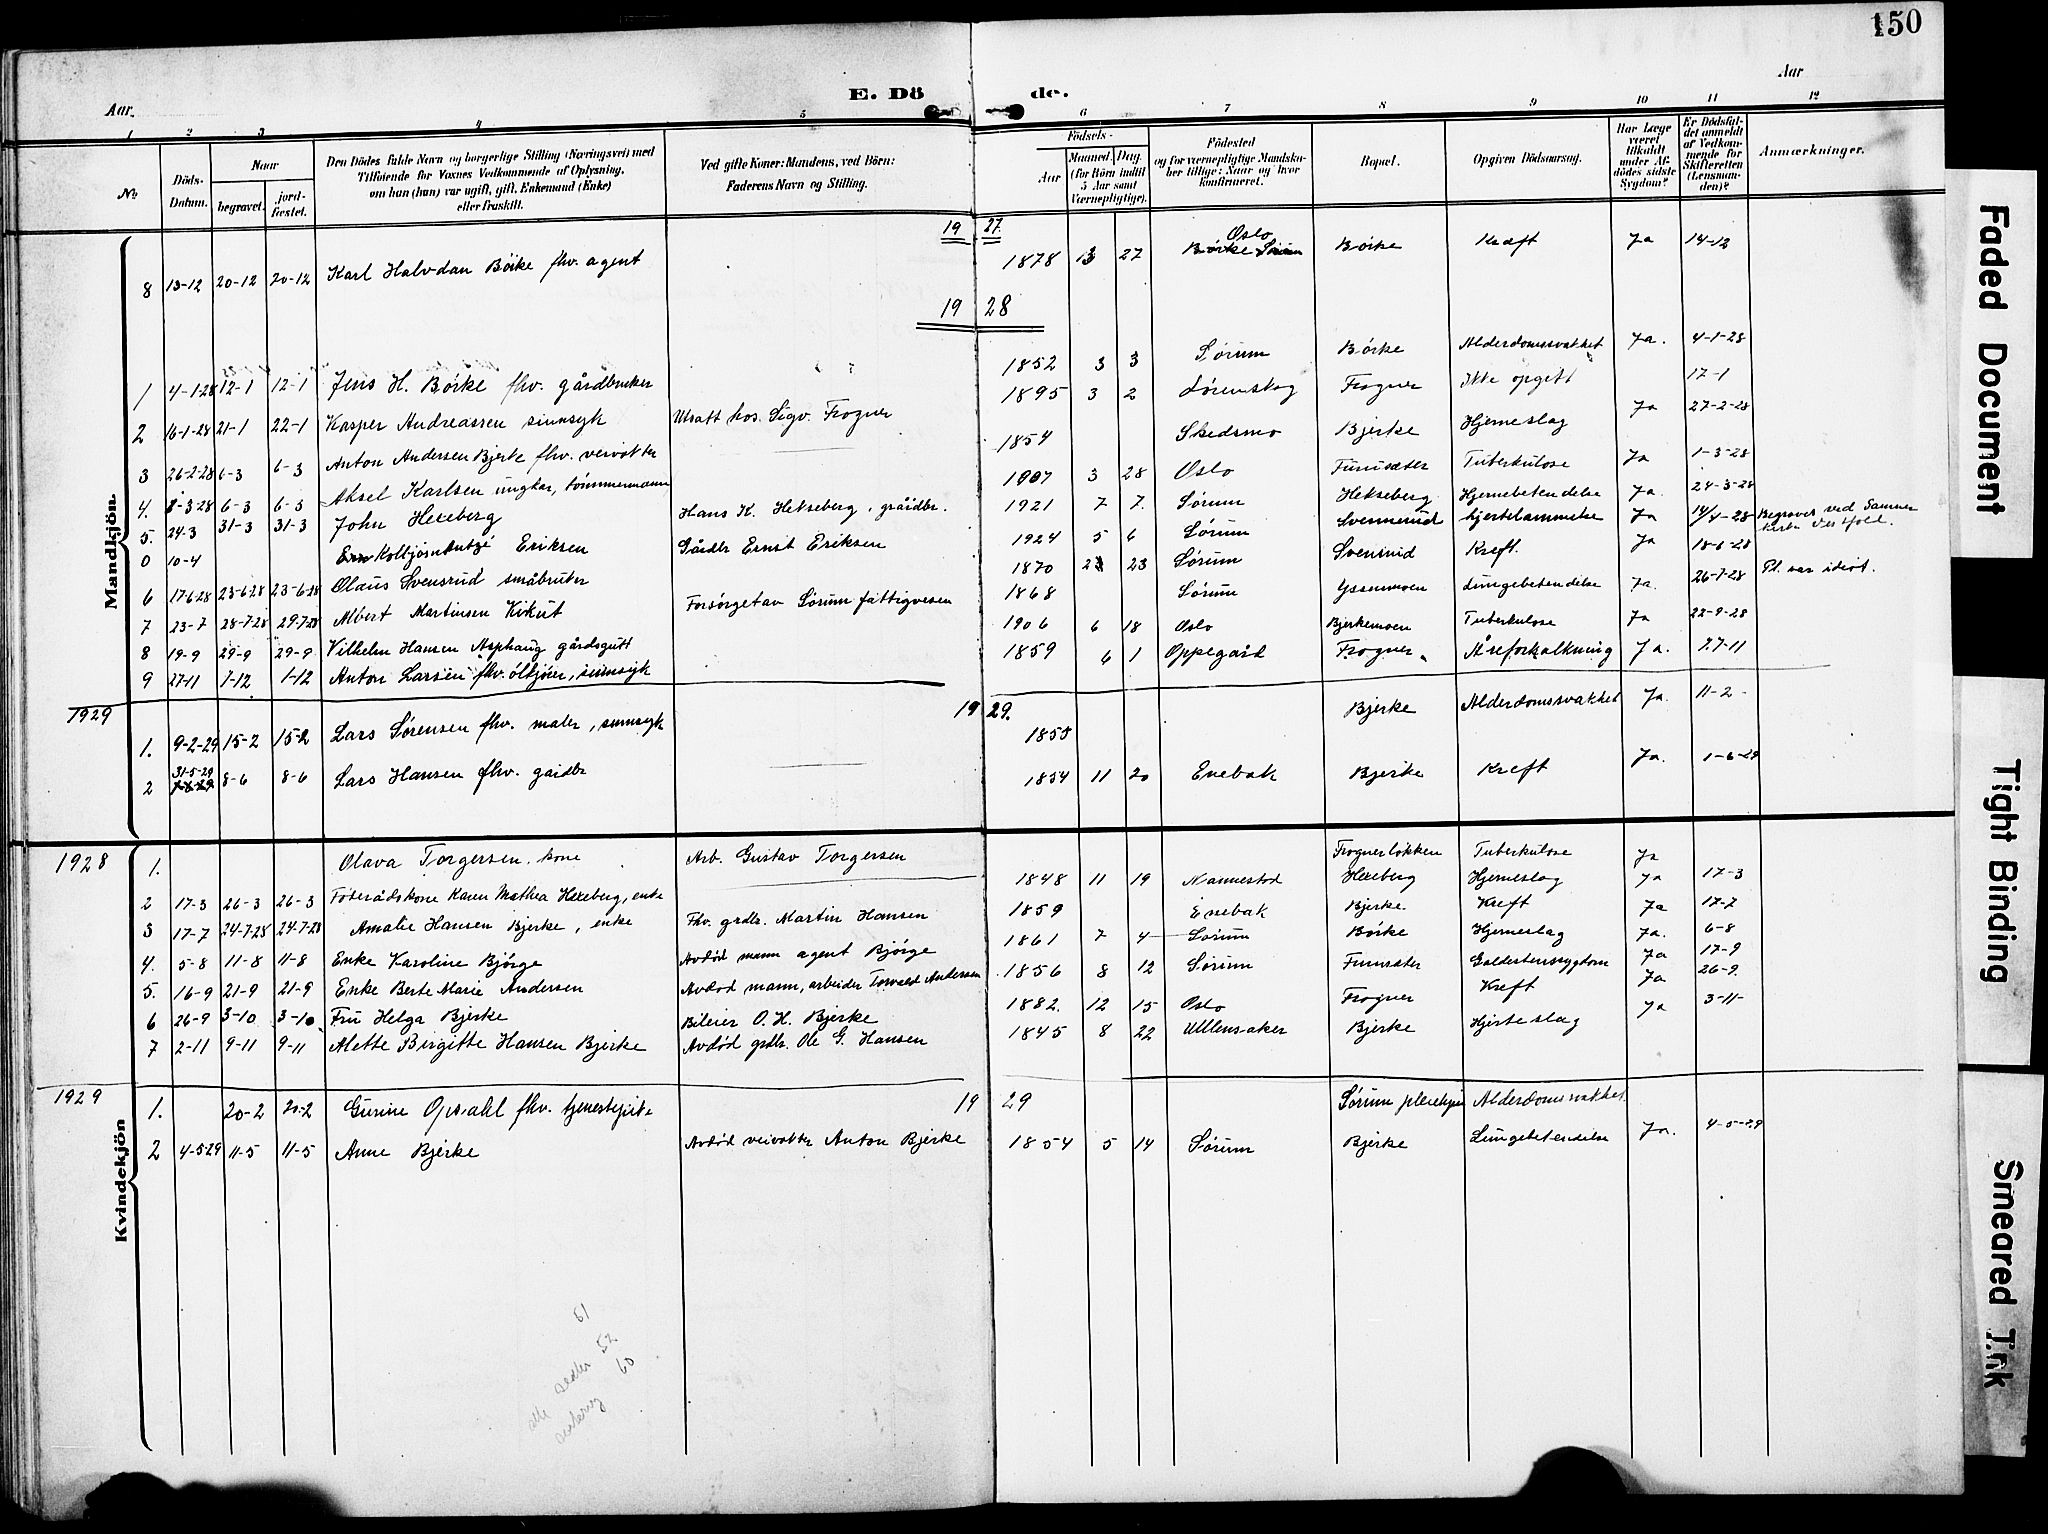 150
Aar.
E. Dö
de.
Aar
1 2 3 4 5 6 7 8 9 10 11 12
No.
Döds-Datum.
Naar
begravet.
jord-fæstet.
Den Dödes fulde Navn og borgerlige Stilling (Næringsvei) med
Tilføiende for Voxnes Vedkommende af Oplysning,
om han (hun) var ugift, gift, Enkemand (Enke)
eller fraskilt.
Ved gifte Koner: Mandens, ved Börn:
Faderens Navn og Stilling.
Födsels-
Aar
Maaned. Dag.
(for Börn indtil
5 Aar samt
Værnepligtige).
Födested
og for værnepligtige Mandska-
ber tillige: Naar og hvor
konfirmeret.
Bopæl.
Opgiven Dödsaarsag.
Har Læge
været
tilkaldt
under Af-
dødes sidste
Sygdom?
Er Dödsfal-
det anmeldt
af Vedkom-
mende for
Skifteretten
(Lensman-
den)?
Anmærkninger.
Mandkjön.
19 27.
8 13-12 20-12 20-12 Karl Halvdan Börke fhv. agent 1878 13 27 Oslo Börke Kræft Ja 14-12
19 28
1 4-1-28 12-1 12-1 Jens H. Börke fhv. gårdbruker 1852 3 3 Sørum Börke Alderdomssvakhet Ja. 4-1-28
2 16-1-28 21-1 22-1 Kasper Andreassen sinnsyk Utsatt hos. Sigv. Frogner 1895 3 2 Lørenskog Frogner Ikke opgitt 17-1
3 26-2-28 6-3 6-3 Anton Andersen Bjerke fhv. veivokter 1854 Skedsmo Bjerke Hjerneslag Ja 27-2-28
4. 8-3-28 6-3 6-3 Aksel Karlsen ungkar, tømmermann 1907 3 28 Oslo Furusæter Tuberkulose Ja 1-3-28
5. 24-3 31-3 31-3 John Hexeberg Hans K. Hekseberg, gråidbr. 1921 7 7. Sørum Hekseberg Hjernebetendelse Ja. 24-3-28
0 10-4 Kolbjørn Eriksen Gårdbr Ernst Eriksen 1924 5 6 Sørum Svensrud hjertelammelse Ja 14/4-28 Begraves ved Kirke Vestfold.
6 17-6-28 23-6-28 23-6-28 Olaus Svensrud småbruker 1870 23 Sørum Svensrud Kreft. Ja 18-6-28
7 23-7 28-7-28 29-7-28 Albert Martinsen Kikut Forsørget av Sørum fattigvesen 1868 Sørum Lungebetendelse Ja. 26-7-28 Pl. var idiot.
8 19-9 29-9 29-9 Vilhelm Hansen Asphaug gårdsgutt 1906 6 18 Oslo Bjerkemoen Tuberkulose Ja 22-9-28
9 27-11 1-12 1-12 Anton Larsen fhv. ølkjører, sinnsyk 1859 6 1 Oppegård Frogner Åreforkalkning Ja. 27-11
1929 19 29.
1. 9-2-29 15-2 15-2 Lars Sørensen fhv. maler, sinnsyk 1855 Bjerke Alderdomssvakhet Ja. 11-2
2 31-5-29 8-6 8-6 Lars Hansen fhv. gårdbr 1854 11 20 Enebak Bjerke Kreft Ja. 1-6-29
Kvindekjön
1928 1. Olava Torgersen, kone Arb. Gustav Torgersen Frognerløkken Tuberkulose Ja
2 17-3 26-3 26-3 Føderådskone Karen Mathea Hexeberg, enke 1848 11 19 Nannestad Hexeberg Hjerneslag Ja 17-3
3 17-7 24-7-28 24-7-28 Amalie Hansen Bjerke, enke Fhv. grdbr. Martin Hansen 1859 Enebak Bjerke Kreft Ja 17-7
4. 5-8 11-8 11-8 Enke Karoline Bjørge Avdød mann agent Bjørge 1861 7 4 Sørum Börke Hjerneslag Ja. 6-8
5. 16-9 21-9 21-9 Enke Berte Marie Andersen Avdød mann, arbeider Torvald Andersen 1856 8 12 Sørum Furusæter Galdestenssygdom Ja 17-9
6 26-9 3-10 3-10 Fru Helga Bjerke Bileier O. H. Bjerke 1882. 12 15 Oslo Frogner Kreft Ja 26-9.
7 2-11 9-11 9-11 Alette Birgitte Hansen Bjerke Avdød grdbr. Ole G. Hansen 1845 8 22 Ullensaker Bjerke Hjerteslag Ja 3-11-
1929 19 29
1. 20-2 20-2 Gurine Opsahl fhv. tjenestepike Sørum pleiehjem Alderdomssvakhet
2 4-5-29 11-5 11-5 Anne Bjerke Avdød veivokter Anton Bjerke 1854 5 14 Sørum Bjerke Lungebetendelse Ja. 4-5-29
61
52
60
Faded Document
Tight Binding
Smeared Ink